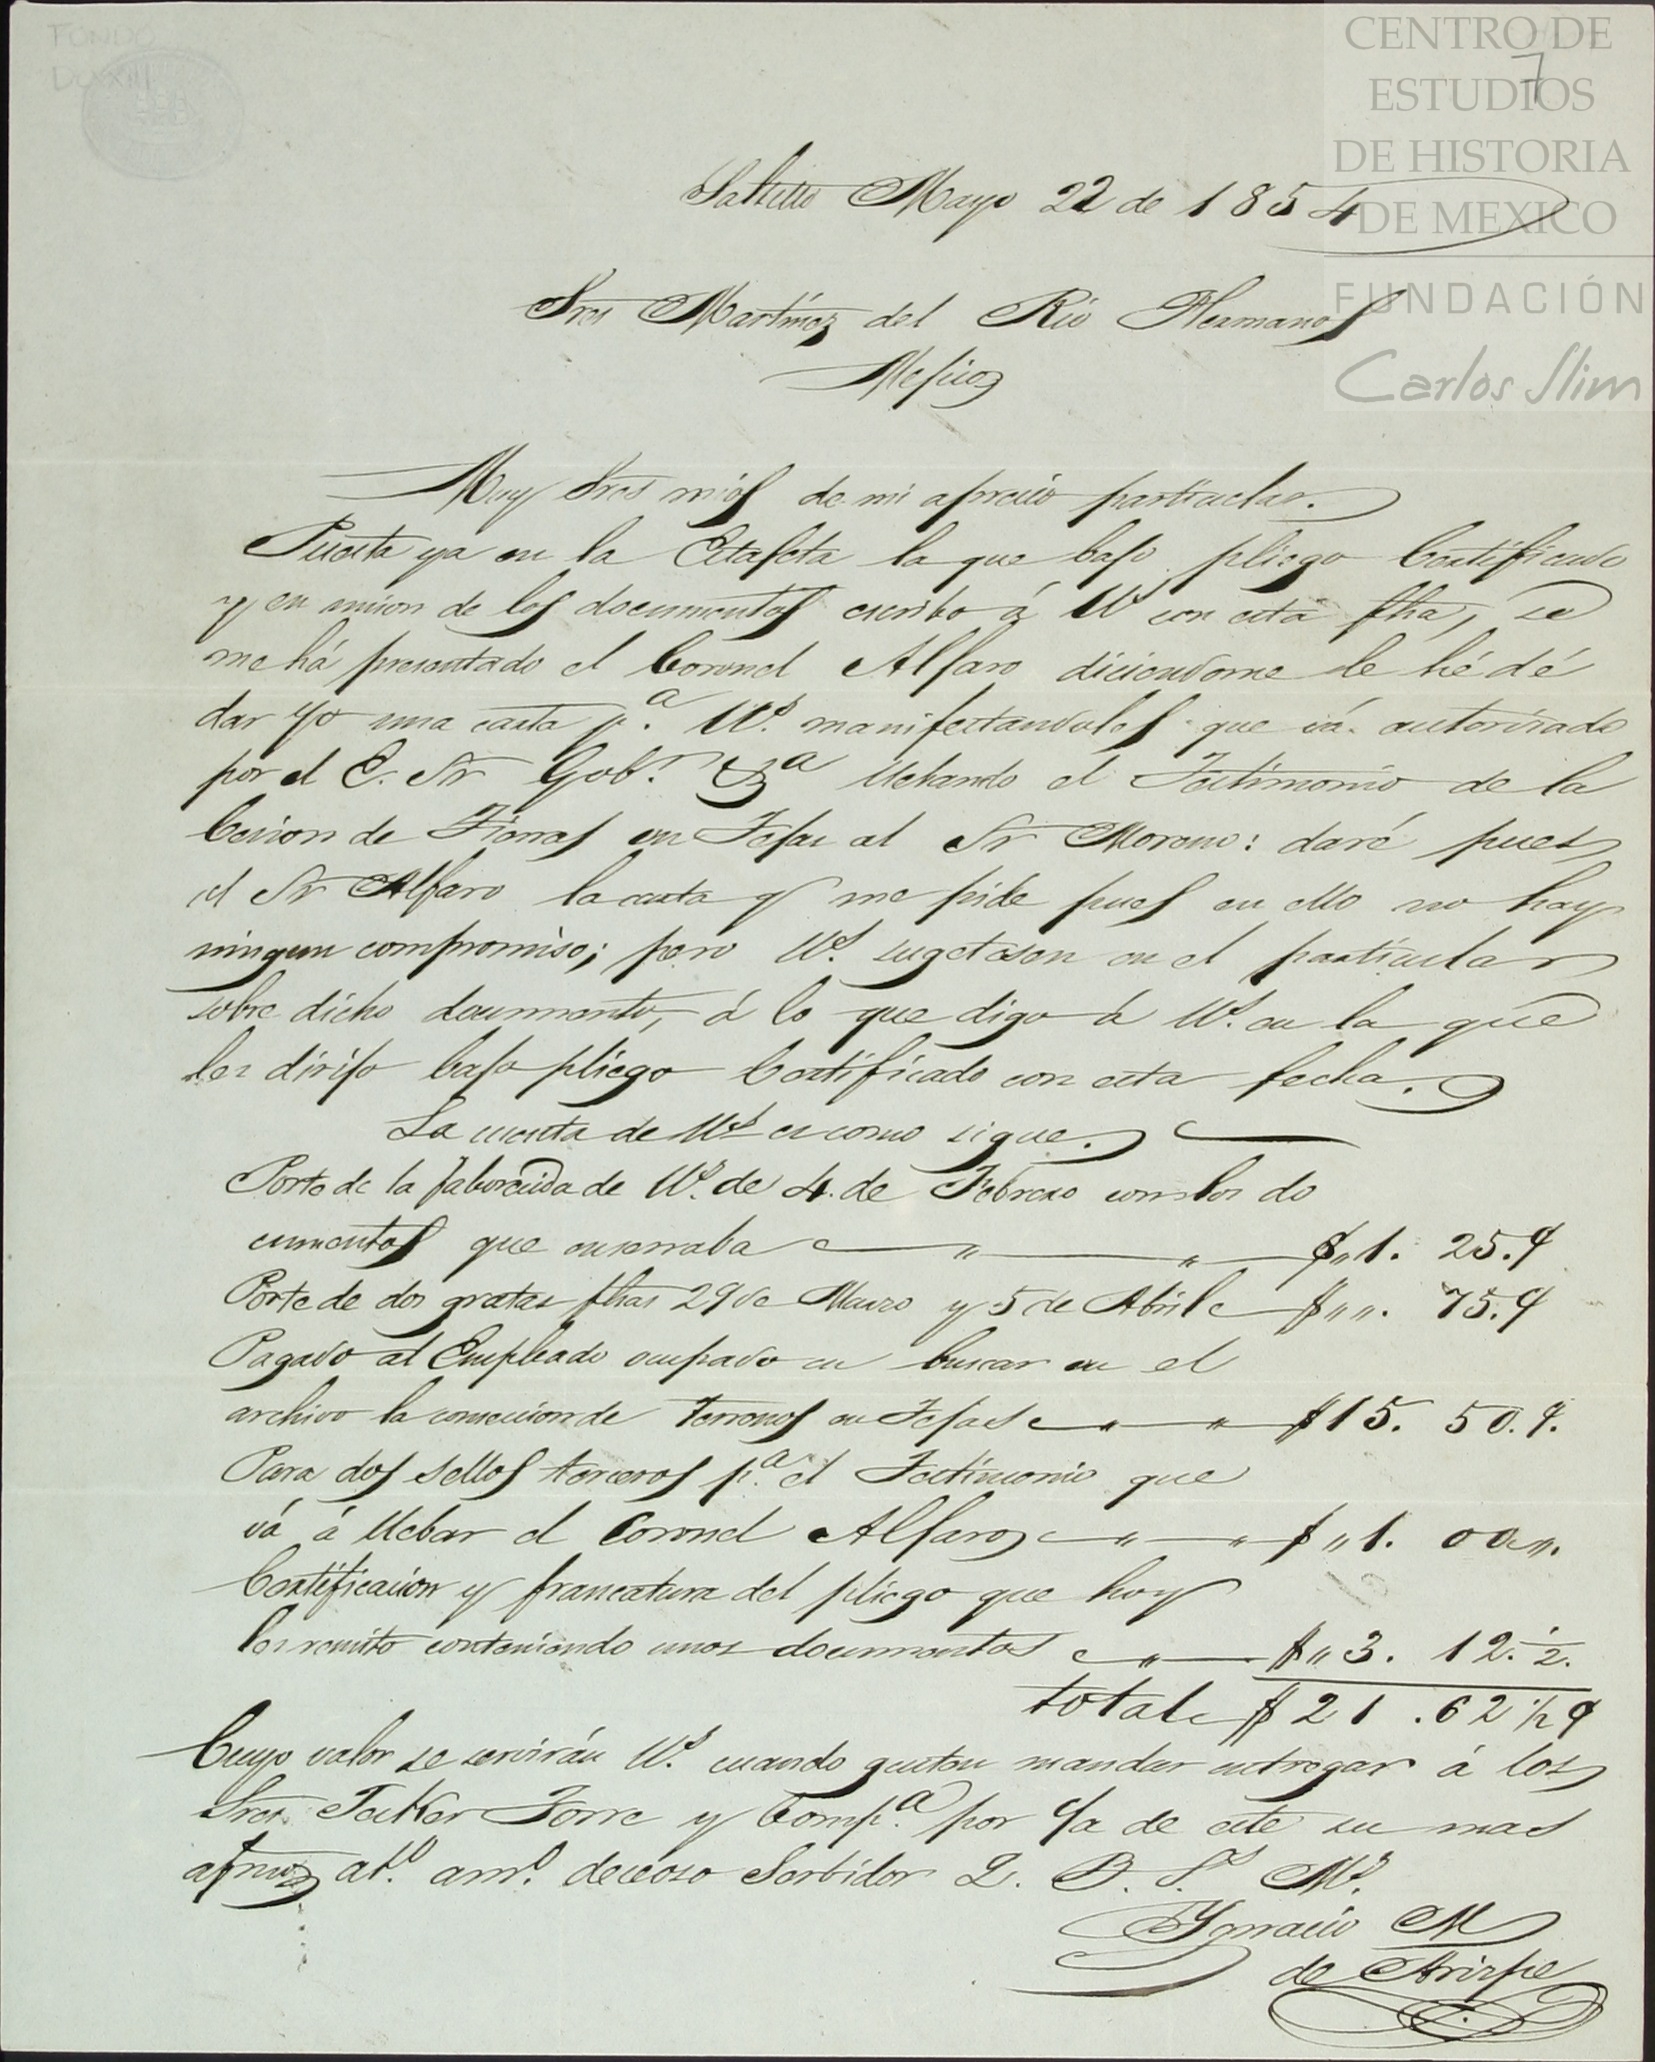 FONDO
DCXXIII
7
CENTRO DE
ESTUDIOS
DE HISTORIA
DE MEXICO
FUNDACIÓN
Carlos Slim
Saltillo Mayo 22 de 1854
Sres Martinez del Rio Hermanos
Mejico
Muy Sres mios de mi aprecio particular.
Puesta ya en la Estafeta la que bajo pliego Certificado
y en union de los documentos escribo á Us con esta fha, se
me há presentado el Coronel Alfaro diciendome le hé dé
dar yo una carta p.a Us. manifestandoles que vá autorisado
por el E. Sr Gob.r &a llebando el Testimonio de la
Cesion de Tierras en Tejas al Sr Moreno: daré pues
al Sr Alfaro la carta q me pide pues en ello no hay
ningun compromiso; pero Us. sugetesen en el particular
sobre dicho documento, á lo que digo á Us. en la que
les dirijo bajo pliego Certificado con esta fecha.
La cuenta de Us es como sigue.
Porte de la faborecida de Us. de 4. de Febrero con los do
cumentos que enserraba " " $ " 1. 25. ¢
Porte de dos gratas fhas 29 de Marzo y 5 de Abril $ " ". 75. ¢
Pagado al Empleado ocupado en buscar en el
archivo la consecion de terrenos en Tejas " " $ 15. 50. ¢.
Para dos sellos terceros p.a el Testimonio que
vá á llebar el Coronel Alfaro " " $ " 1. 00 ".
Certificacion y francatura del pliego que hoy
les remito conteniendo unos documentos " $ " 3. 12. ½.
total $ 21 . 62 1/2 ¢
Cuyo valor se servirán Us. cuando gusten mandar entregar á los
Sres. Torre y Comp.a por c/a de este su mas
at.o am.o deceoso Serbidor Q. B. S.s M.s
Ygnacio M
de Arizpe